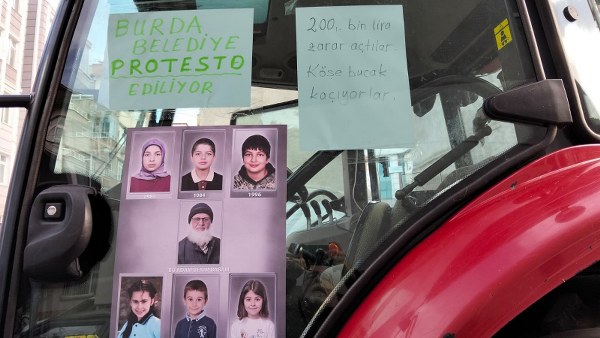 BURDA
BELEDİYE
PROTESTO
EDİLİYOR
200,. bin lira
zarar açtılar
Köşe bucak
kaçıyorlar.
1994
1996